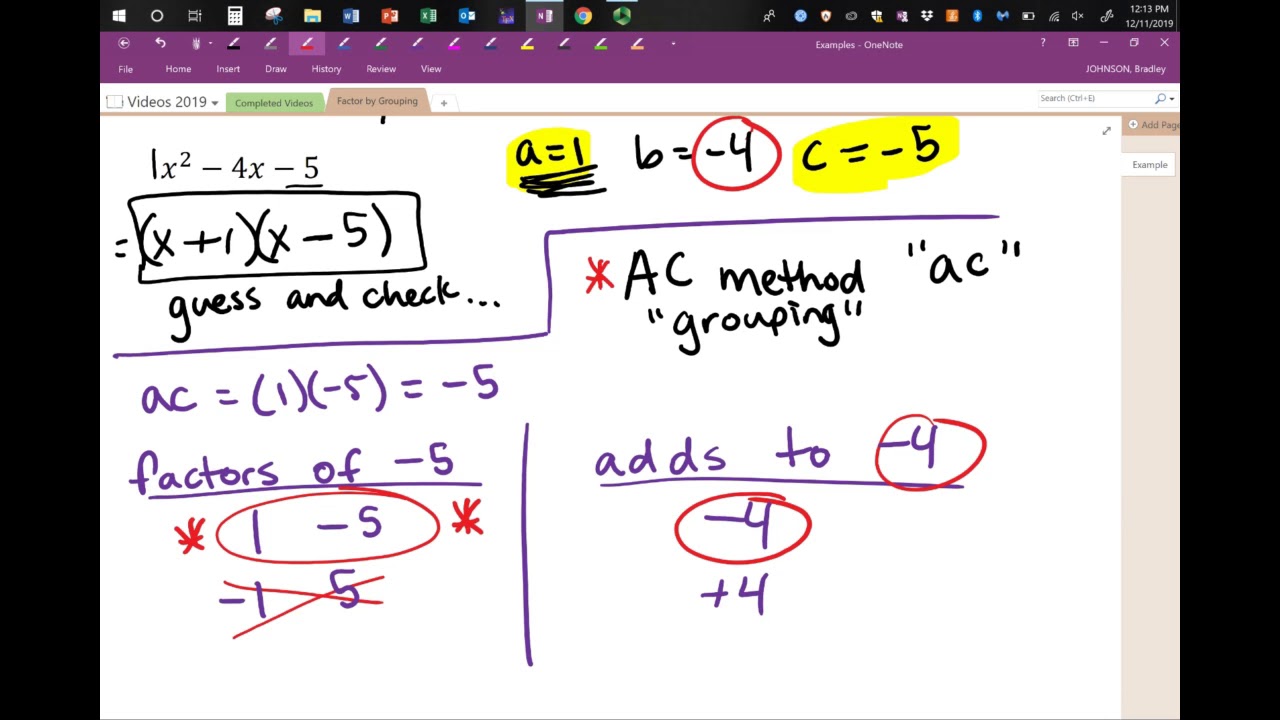 12:13 PM
12/11/2019
Examples - OneNote
File Home Insert Draw History Review View
JOHNSON, Bradley
Videos 2019 Completed Videos Factor by Grouping
Search (Ctrl+E)
Add Page
Example
1x² − 4x − 5
a=1 b=-4 c=-5
=(x+1)(x-5)
guess and check...
* AC method "ac"
"grouping"
ac = (1)(-5) = -5
factors of -5
adds to -4
* 1 -5 *
-4
-1 5
+4